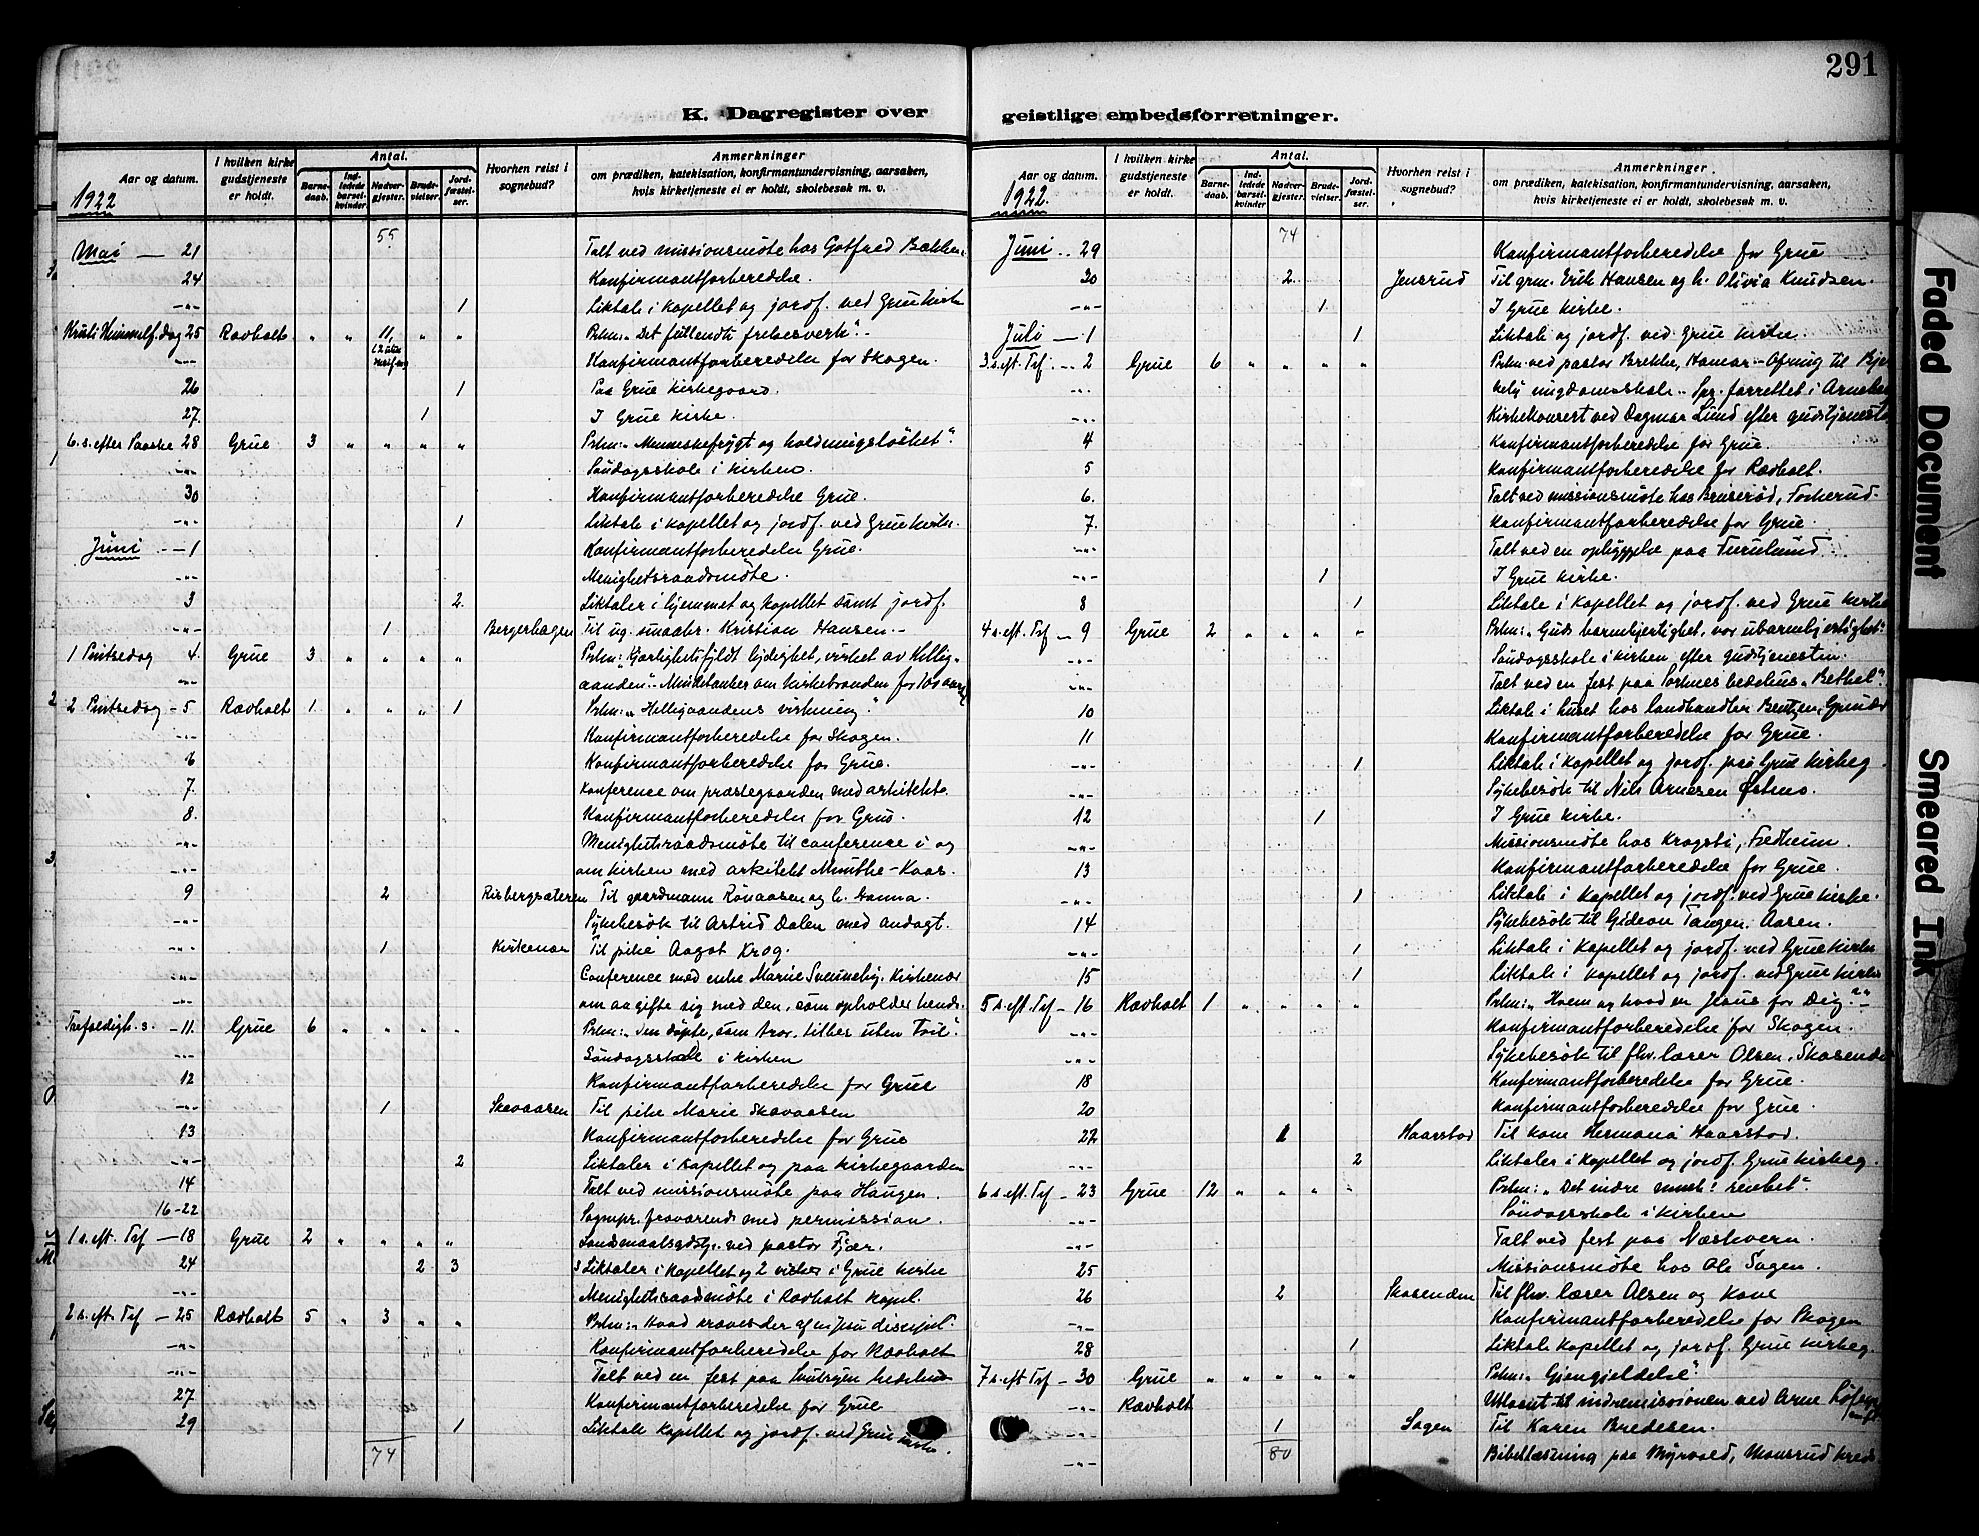 291
K. Dagregister over
Aar og datum.
1922
I hvilken kirke gudstjeneste er holdt.
Antal.
Barnedaab.
Indledede barselkvinder
Nadvergjester.
Brudevielser.
Jordfæstelser.
Hvorhen reist i sognebud?
Anmerkninger
om prædiken, katekisation, konfirmantundervisning, aarsaken,
hvis kirketjeneste ei er holdt, skolebesøk m. v.
55
Mai — 21 Talt ved missionsmöte hos Gotfred Bakken.
24 Konfirmantforberedelse.
-"- 1 Liktale i kapellet og jordf. ved Grue kirke
Kristi Himmelf.dag 25 Rævholt " " 11 " " Prkn: "Det fullendte frelsesverk".
-"- Konfirmantforberedelse for Skogen.
26 1 Paa Grue kirkegaard.
27. 1 I Grue kirke.
6. s. efter Paaske 28 Grue 3 " " " " Prkn: "Menneskefrygt og holdningslöshet".
-"- Söndagsskole i kirken.
30 Konfirmantforberedelse Grue.
-"- 1 Liktale i kapellet og jordf. ved Grue kirke.
Juni — 1 Konfirmantforberedelse Grue.
-"- Menighetsraadsmöte.
3 2. Liktaler i hjemmet og kapellet samt jordf.
-"- 1 Bergerhagen Til ug. smaabr. Kristian Hansen.
1 Pintsedag 4. Grue 3 " " " " Prkn: Kjærlighetsfyldt lydighet, virket av Hellig-
-"- aanden". Mindetanker om kirkebranden for 100 aar
2 Pintsedag - 5 Rævholt 1 " " " 1 Prkn: "Helligaandens virkning"
-"- Konfirmantforberedelse for Skogen.
6 Konfirmantforberedelse for Grue.
7. Konference om præstegaarden med arkitekt.
8. Konfirmantforberedelse for Grue.
-"- Menighetsraadsmöte til conference i og
-"- om kirken med arkitekt Munthe-Kaas.
9 2 Risbergsæteren Til gaardmann Rönaasen og h. Hanna.
-"- Sykebesök til Astrid Dalen med andagt.
-"- 1 Kirkenær Til pike Aagot Krog.
-"- Conference med enke Marie Svenneby, Kirkenær
-"- om aa gifte sig med den, som opholder hende.
Trefoldigh. s. - 11. Grue 6 " " " " Prkn: "Den döpte, som tror, tilber uten tvil".
-"- Söndagsskole i kirken
12 Konfirmantforberedelse for Grue
-"- 1 Skavaasen Til pike Marie Skavaasen
13 Konfirmantforberedelse for Grue
-"- 2 Liktaler i kapellet og paa kirkegaarden
14 Talt ved missionsmöte paa Haugen.
16-22 Sognepr. fraværende med permission.
1 s. eft. Tref — 18 Grue 2 " " " " Landsmaalsgdstj. ved pastor Fjær.
24 2 3 3 Liktaler i kapellet og 2 vielser i Grue kirke
-"- Menighetsraadsmöte i Rævholt kapel.
2 s. eft. Tref — 25 Rævholt 5 " 3 " " Prkn: "Hvad kræves der af en Jesu discipel".
-"- Konfirmantforberedelse for Rævholt
-"- Talt ved en fest paa bedehus
27 Konfirmantforberedelse for Grue
29 1 Liktale kapellet og jordf. ved Grue kirke.
74
geistlige embedsforretninger.
Aar og datum.
1922.
I hvilken kirke gudstjeneste er holdt.
Antal.
Barnedaab.
Indledede barselkvinder
Nadvergjester
Brudevielser.
Jordfæstelser.
Hvorhen reist i sognebud?
Anmerkninger.
om prædiken, katekisation, konfirmantundervisning, aarsaken,
hvis kirketjeneste ei er holdt, skolebesøk m. v.
74
Juni .. 29 Konfirmantforberedelse for Grue
30 2 Jensrud Til grm. Erik Hansen og h. Olivia Knudsen.
-"- 1 I Grue kirke.
Juli — 1 1 Liktale og jordf. ved Grue kirke.
3. s. eft. Tref. -- 2 Grue 6 " " " " Prkn ved pastor Brekke, Hamar - Ofring til
ungdomsskole. Spr. forrettet i
-"- Kirkekonsert ved Dagmar Lund efter gudstjenesten
4 Konfirmantforberedelse for Grue.
5 Konfirmantforberedelse for Rævholt.
6. Talt ved missionsmöte hos Bruseröd,
7. Konfirmantforberedelse for Grue.
-"- Talt ved en opbyggelse paa Furulund.
-"- 1 I Grue kirke.
8 1 Liktale i kapellet og jordf. ved Grue kirke
4 s. eft. Tref — 9 Grue 2 " " " " Prkn: "Guds barmhjertighet, vor ubarmhjertighet".
-"- Söndagsskole i kirken efter gudstjenesten.
-"- Talt ved en fest paa bedehus "Bethel".
10 Liktale i huset hos landhandler Bentzen, Grinder
11 Konfirmantforberedelse for Grue.
-"- 1 Liktale i kapellet og jordf. paa Grue kirkeg.
-"- Sykebesök til Nils Arnesen Östmo.
12 1 I Grue kirke.
-"- Missionsmöte hos Krogsti, Fredheim.
13 Konfirmantforberedelse for Grue.
-"- 1 Liktale i kapellet og jordf. ved Grue kirke.
14 Sykebesök til Gideon Tangen, Aasen.
-"- 1 Liktale i kapellet og jordf. ved Grue kirke
15 1 Liktale i kapellet og jordf. ved Grue kirke
5 s. eft. Tref - 16 Rævholt 1 " " " " Prkn: "Hvem og hvad er Jesus for Dig?"
-"- Konfirmantforberedelse for Skogen.
-"- Sykebesök til fhv. lærer Olsen, Skasenden
18 Konfirmantforberedelse for Grue.
20 Konfirmantforberedelse for Grue.
22 1 Haarstad Til kone Hermana Haarstad.
-"- 2 Liktaler i kapellet og jordf. Grue kirkeg.
6 s. eft. Tref - 23 Grue 12 " " " " Prkn: "Det indre
-"- Söndagsskole i kirken
-"- Talt ved fest paa Næskvern.
25 Missionsmöte hos Ole Sagen.
26 2 Skasenden Til fhv. lærer Olsen og kone
-"- Konfirmantforberedelse for Skogen
28 1 Liktale kapellet og jordf. Grue kirkeg.
7 s. eft Tref - 30 Grue " " " " " Prkn: "Gjengjeldelse".
-"- Rævholt Utlaant til indremissionen ved Arne
-"- 1 Sagen Til Karen Bredesen.
80
-"- Bibellæsning paa Myrvold, Monsrud kreds
Faded Document
Smeared Ink